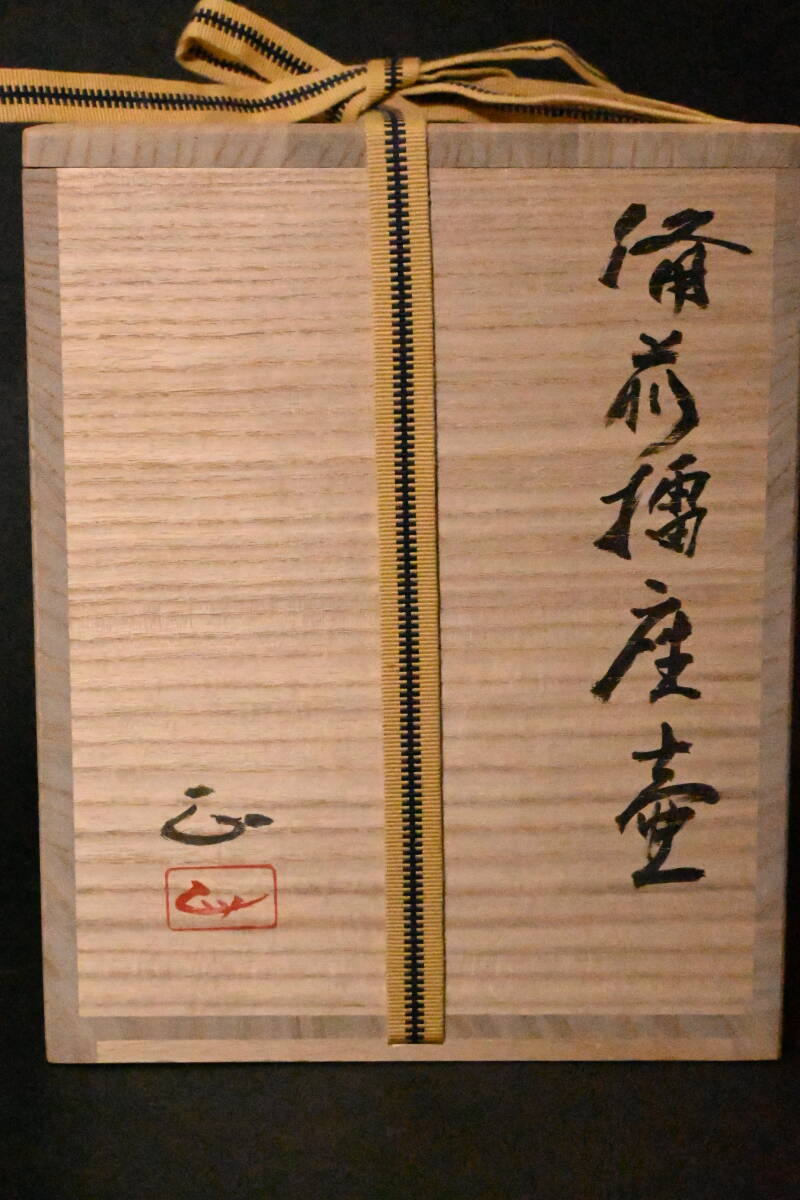 備前擂座壷
正